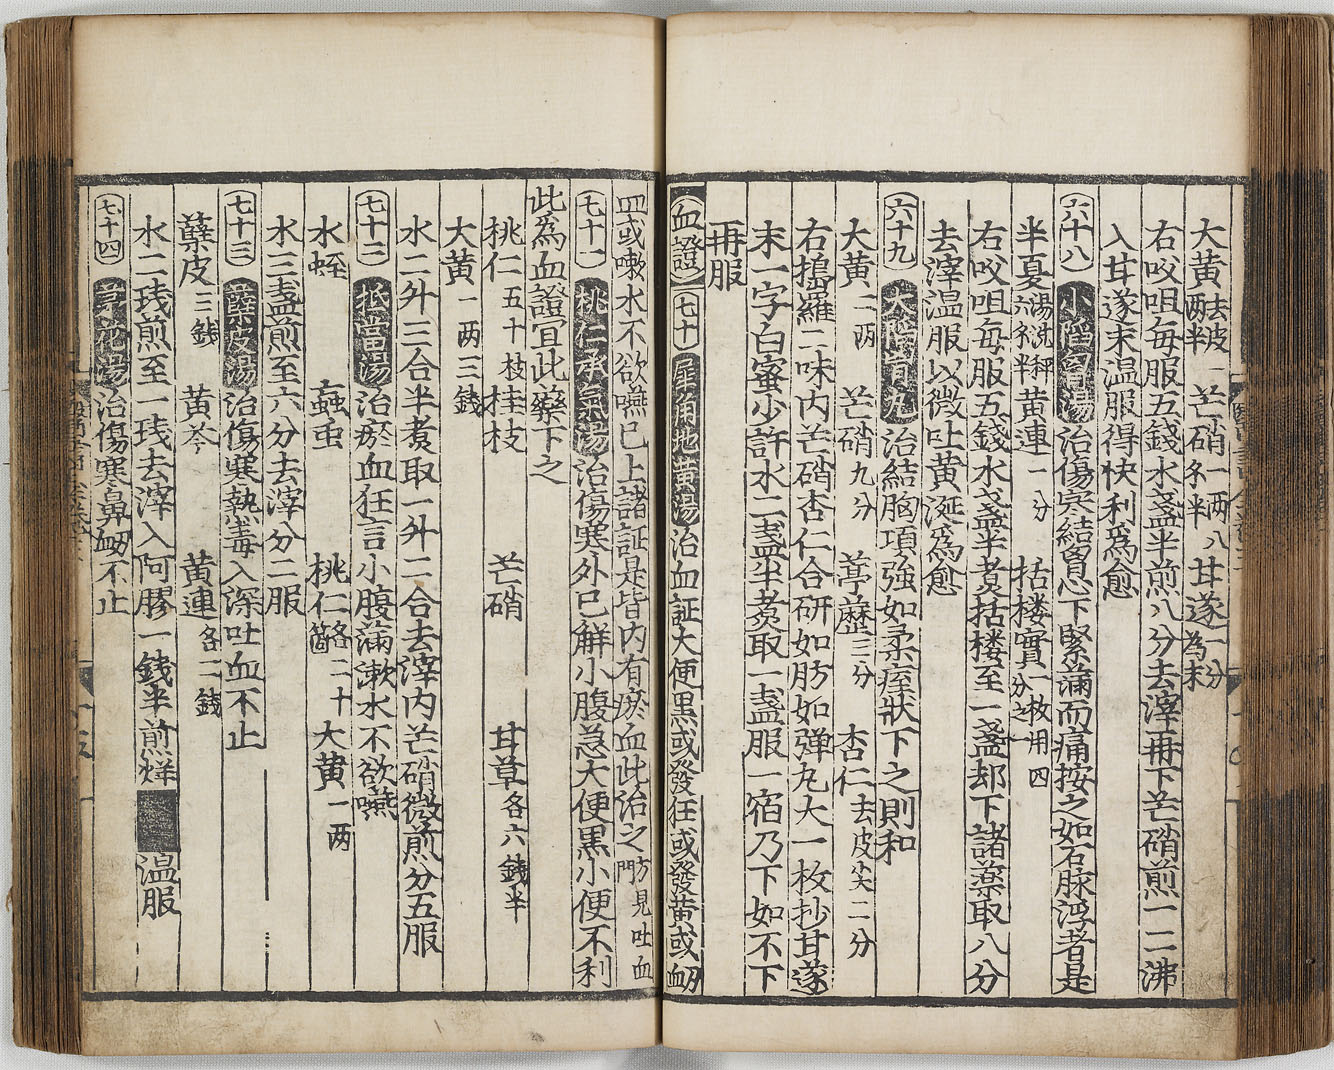 大黃去皮一两半 芒硝一两八分半 甘遂一分為末
右㕮咀每服五錢水盞半煎八分去滓再下芒硝煎一二沸
入甘遂末温服得快利為愈
六十八 小陷胷湯 治傷寒結胷心下緊滿而痛按之如石脉浮者是
半夏湯洗秤六分半 黄連一分 括楼實一枚用四分之一
右㕮咀每服五錢水盞半煑括楼至一盞却下諸藥取八分
去滓温服以微吐黄涎為愈
六十九 大陷胷丸 治結胸項強如柔痓狀下之則和
大黄二两 芒硝九分 葶藶三分 杏仁去皮尖二分
右搗羅二味内芒硝杏仁合研如肪如弹丸大一枚抄甘遂
末一字白蜜少許水二盞半煑取一盞服一宿乃下如不下
再服
血證 七十 犀角地黄湯 治血証大便黒或發狂或發黄或衂
血或嗽水不欲嚥已上諸証是皆内有瘀血此治之方見吐血門
七十一 桃仁承氣湯 治傷寒外已觧小腹急大便黒小便不利
此為血證宜此藥下之
桃仁五十枝 桂枝 芒硝 甘草各六錢半
大黄一两三錢
水二升三合半煑取一升二合去滓内芒硝微煎分五服
七十二 抵當湯 治瘀血狂言小腹滿漱水不欲嚥
水蛭 蝱虫 桃仁各二十箇 大黄一两
水三盞煎至六分去滓分二服
七十三 蘗皮湯 治傷寒熱毒入深吐血不止
蘗皮三錢 黄芩 黄連各二錢
水二琖煎至一琖去滓入阿膠一錢半煎烊 温服
七十四 芫花湯 治傷寒鼻衂不止